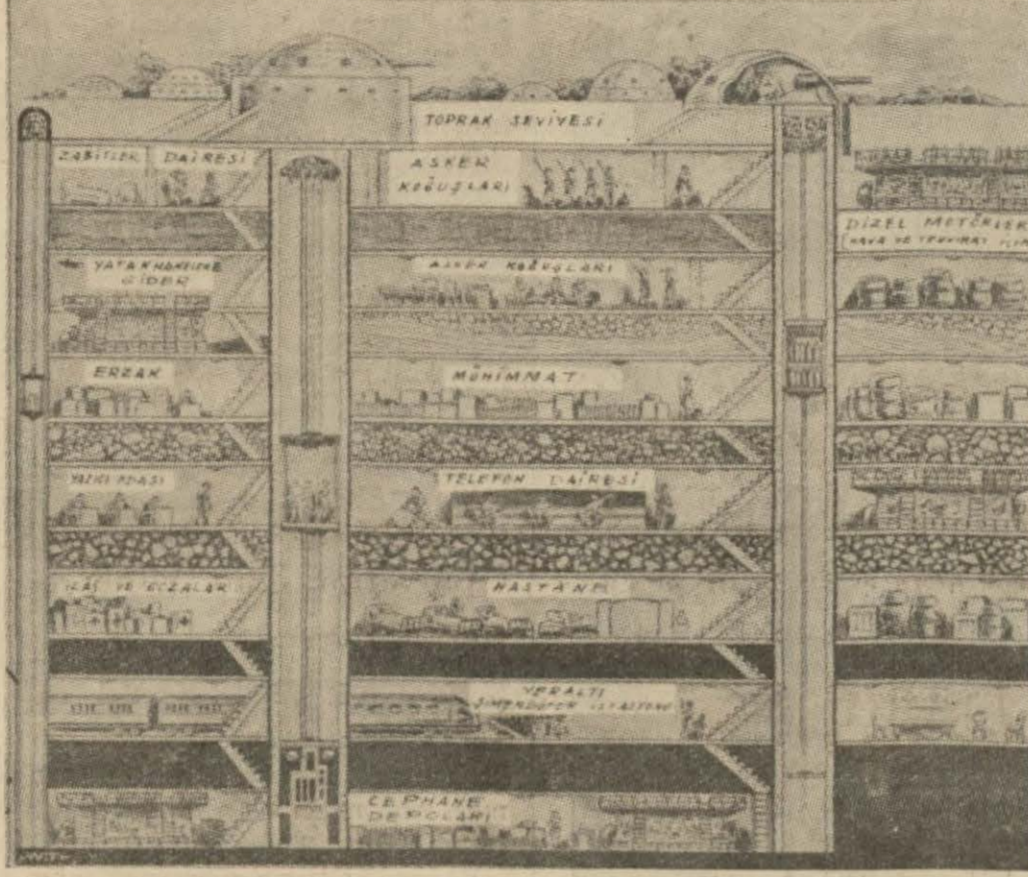 TOPRAK SEVİYESİ
ZABİTLER DAİRESİ
ASKER
KOĞUŞLARI
DİZEL MOTÖRLER
HAVA VE
YATAKHANELERE
GİDER
ASKER KOĞUŞLARI
ERZAK
MÜHİMMAT
YAZICI ODASI
TELEFON DAİRESİ
İLAÇ VE ECZALAR
HASTANE
YERALTI
ŞİMENDÜFER İSTASYONU
CEPHANE
DEPOLARI